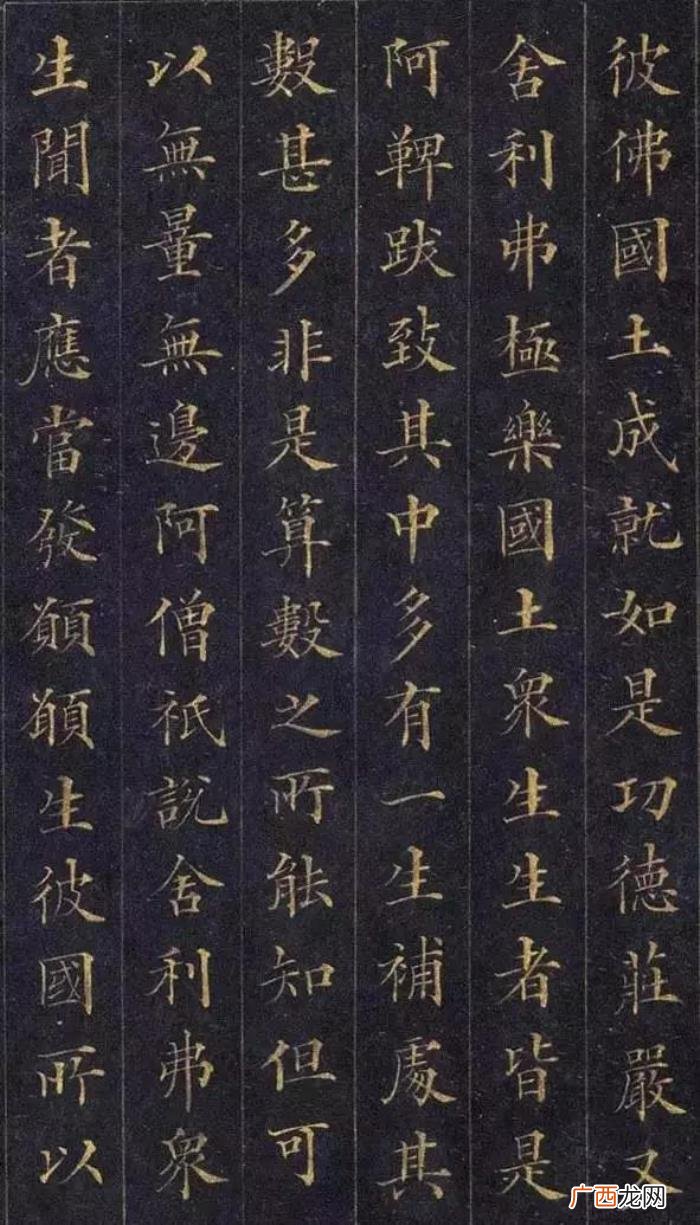 彼佛國土成就如是功德莊嚴又
舍利弗極樂國土眾生生者皆是
阿鞞跋致其中多有一生補處其
數甚多非是算數之所能知但可
以無量無邊阿僧祇說舍利弗眾
生聞者應當發願願生彼國所以
广西龙网